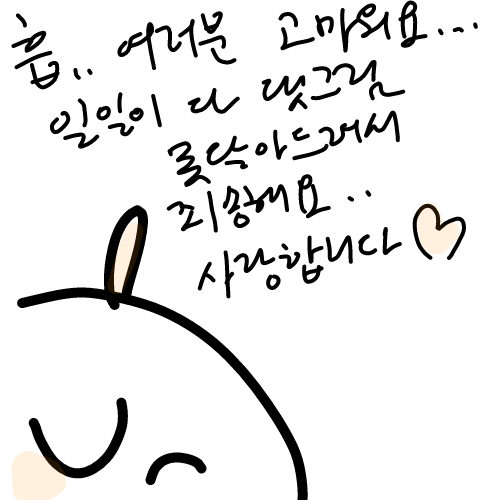 흡.. 여러분 고마워요....
일일이 다 댓그림
못달아드려서
죄송해요..
사랑합니다